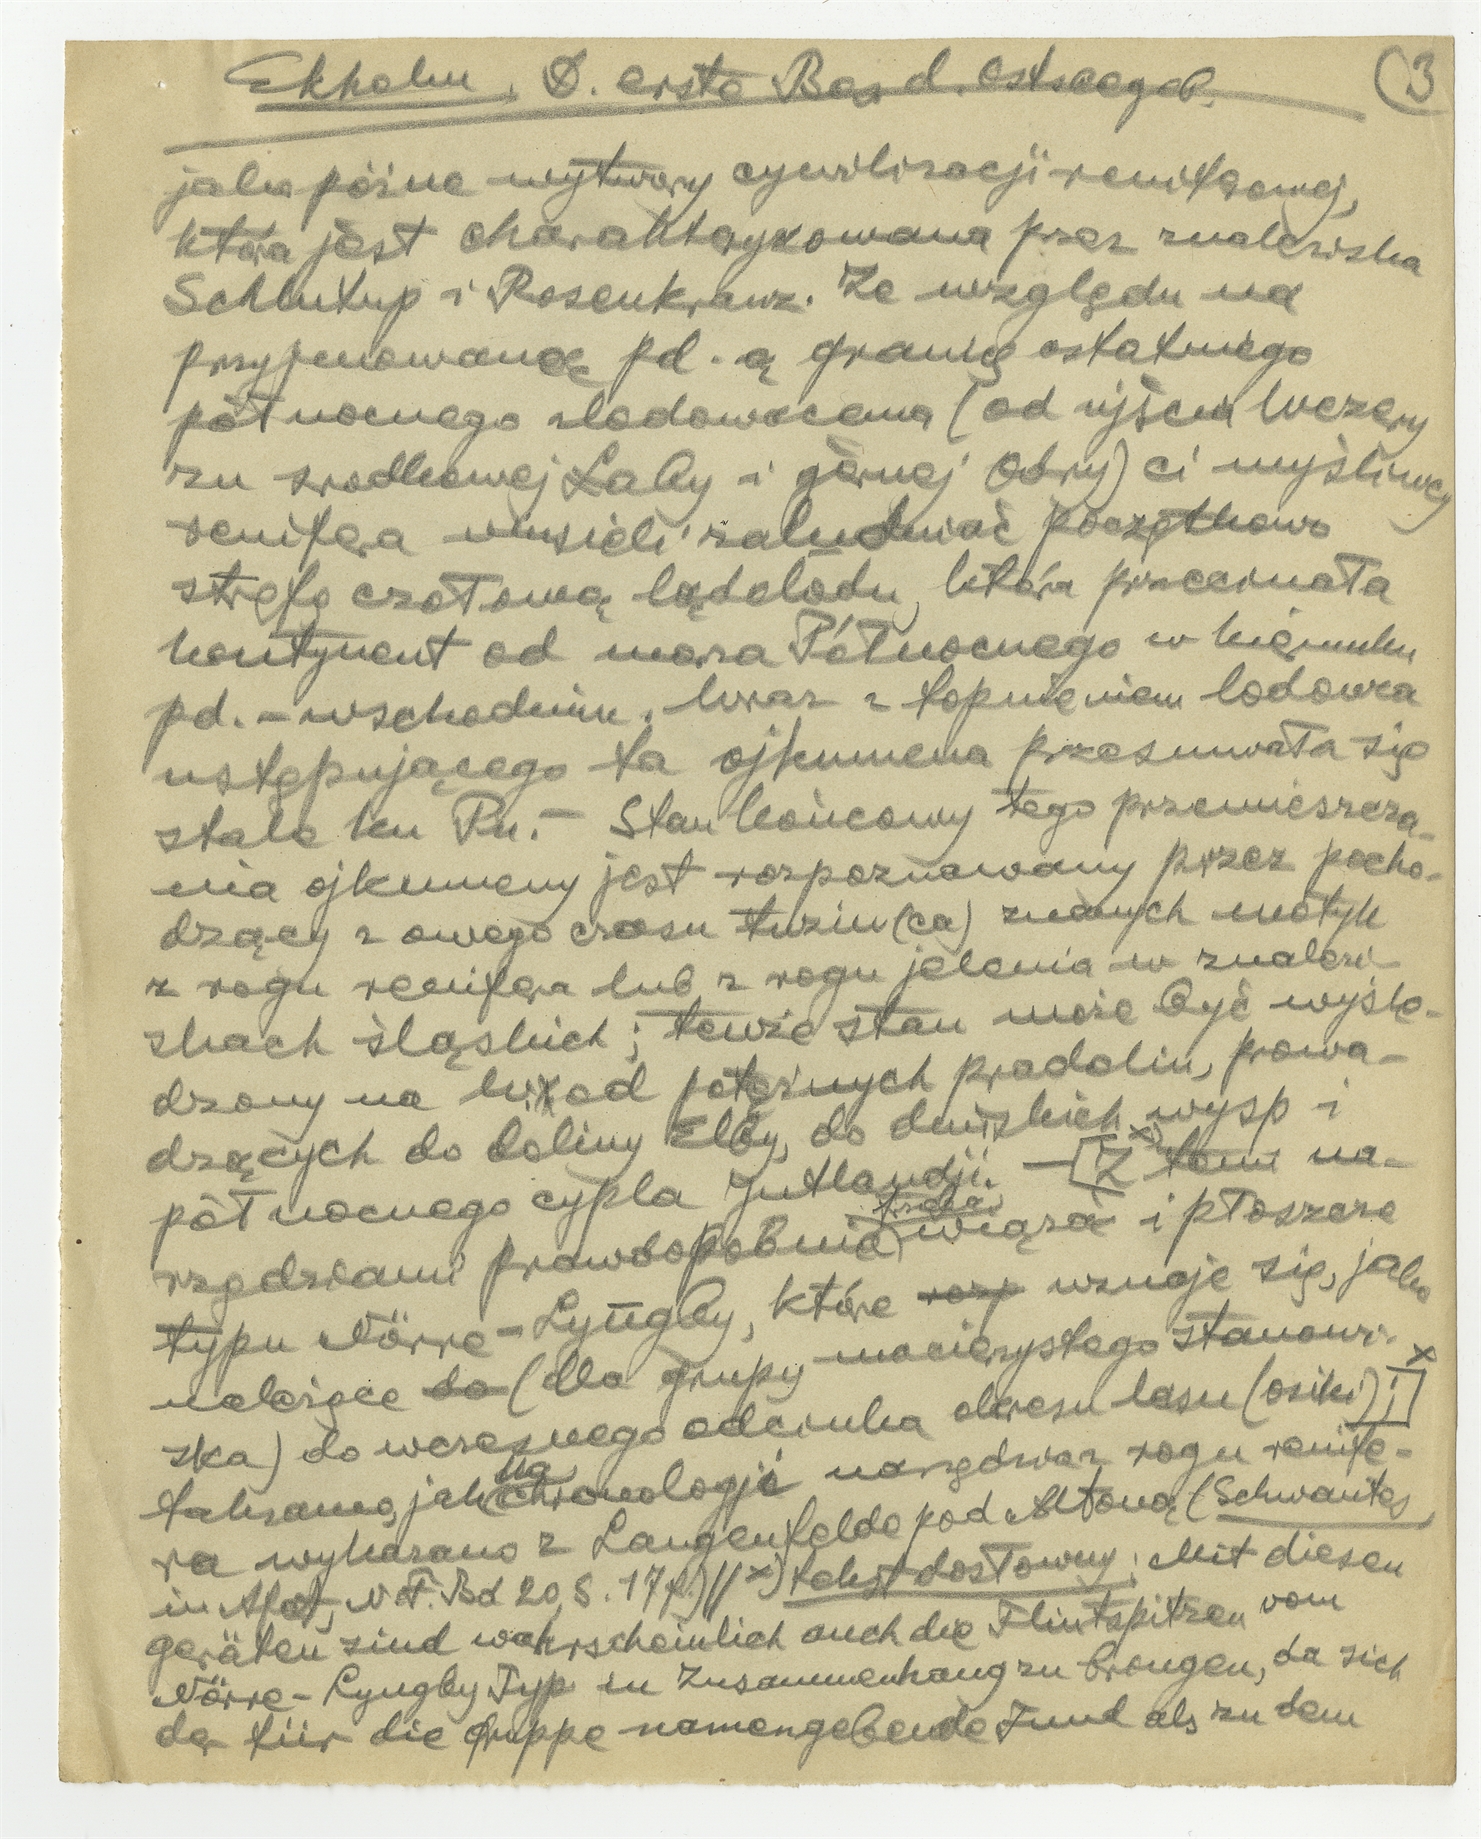 Ekholm, D. erste Bes d. Ostseegeb. (3
jako późne wytwory cywilizacji reniferowej,
która jest charakteryzowana przez znaleziska
Schlutup i Rosenkranz. Ze względu na
przyjmowaną pd.-ą granicę ostatniego
północnego zlodowacenia (od ujścia Wezery
ku środkowej Łaby i górnej Odry) ci myśliwcy
renifera musieli zaludniać początkowo
strefę czołową lądolodu, która przecinała
kontynent od morza Północnego w kierunku
pd.-wschodnim. Wraz z topnieniem lodowca
ustępującego ta ojkumena przesuwała się
stale ku Pn. – Stan końcowy tego przemieszcza-
nia ojkumeny jest rozpoznawany przez pocho-
dzący z owego czasu tuzin(ca) znanych motyk
z rogu renifera lub z rogu jelenia w znalezi-
skach śląskich; tenże stan może być wyśle-
dzony na wschód potężnych pradolin, prowa-
dzących do doliny Elby, do duńskich wysp i
północnego cypla Jutlandji. – [Z temi na-
rzędziami prawdopodobnie) wiąza i płoszcze
typu Nörre-Lyngby, które rozp uznaje się, jako
należące do (dla grupy macierzystego stanowi-
ska) do wczesnego odcinka okresu lasu (osiki)]
x
taksamo, jak na chronologję narzędzia z rogu renife-
ra wykazano z Langenfelde pod Altoną (Schwantes
in AfA, N.F. Bd 20, S. 177)// x) tekst dosłowny: Mit diesen
geräten sind wahrscheinlich auch die Flintspitzen vom
Nörre-Lyngby Typ in Zusammenhang zu brengen, da sich
der für die gruppe namengebende Fund als zu dem